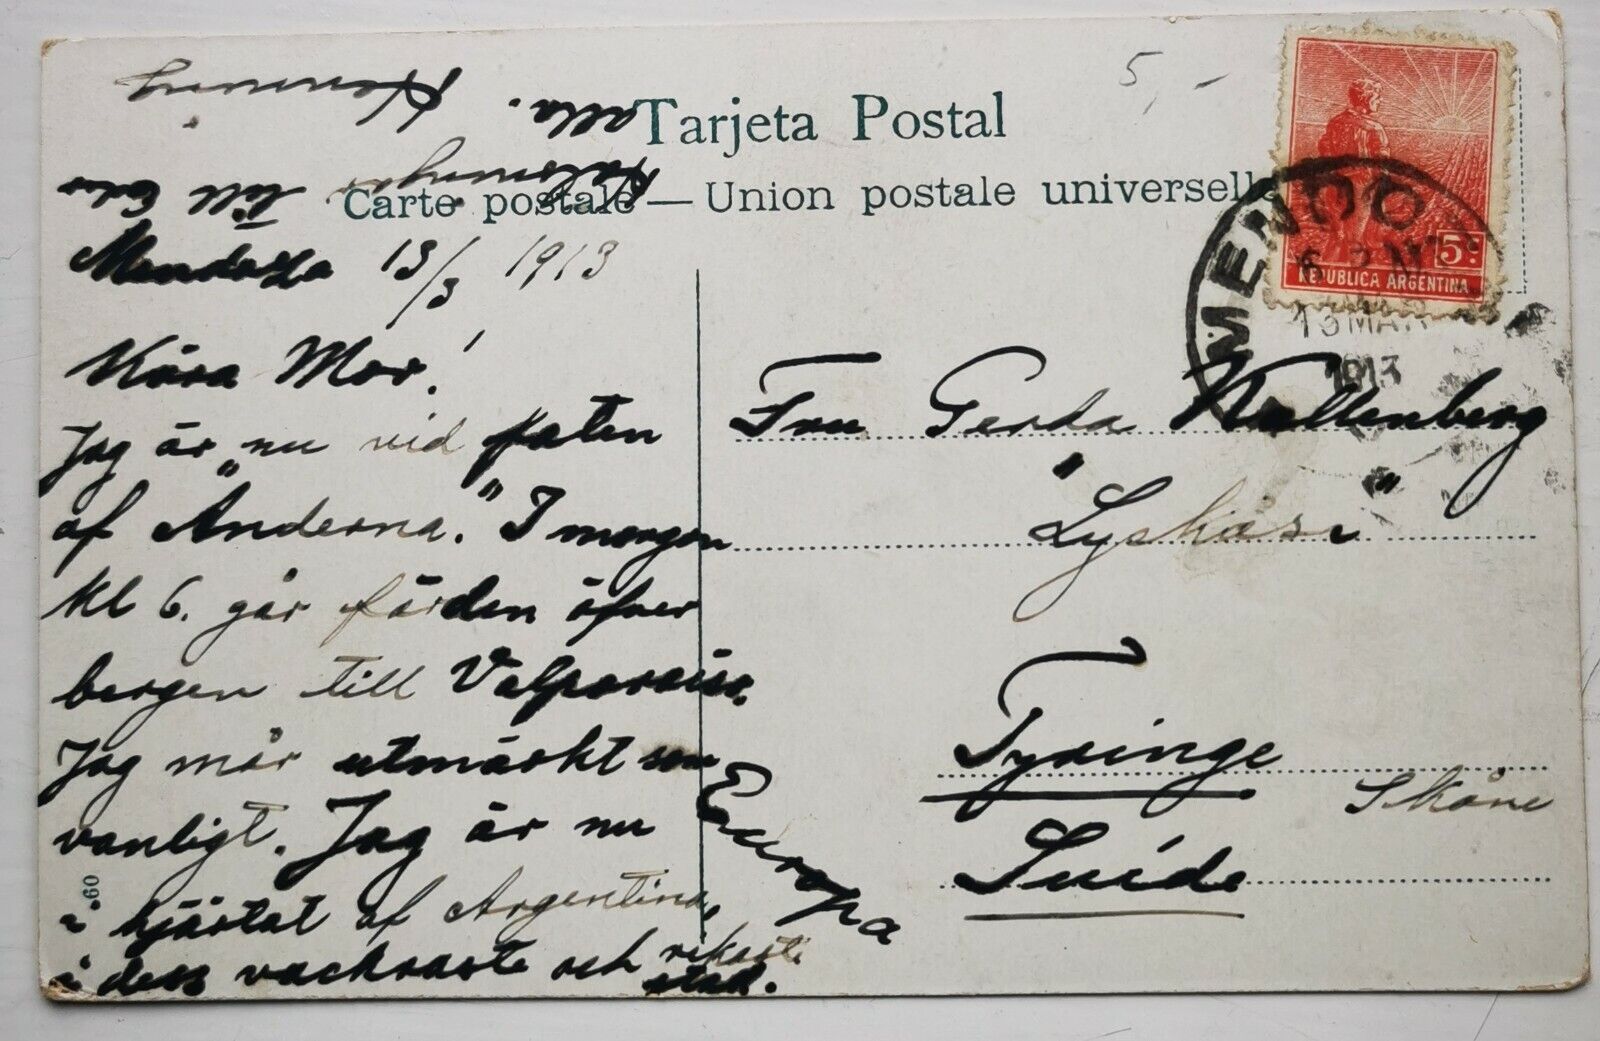 Tarjeta Postal
Carte postale — Union postale universelle
5,-
5 c.
REPUBLICA ARGENTINA
MENDO
13 MAR
1913
Mendoza 13/3 1913
Kära Mor!
Jag är nu vid foten
af "Anderna." I morgon
kl 6. går färden öfver
bergen till Valparaiso.
Jag mår utmärkt som
vanligt. Jag är nu
i hjärtat af Argentina,
i dess vackraste och rikaste
stad.
Hälsningar till Eder
alla. Henning
Fru Gerda Wallenberg
"Lyckåsen"
Tyringe
Skåne
Suéde
Europa
60